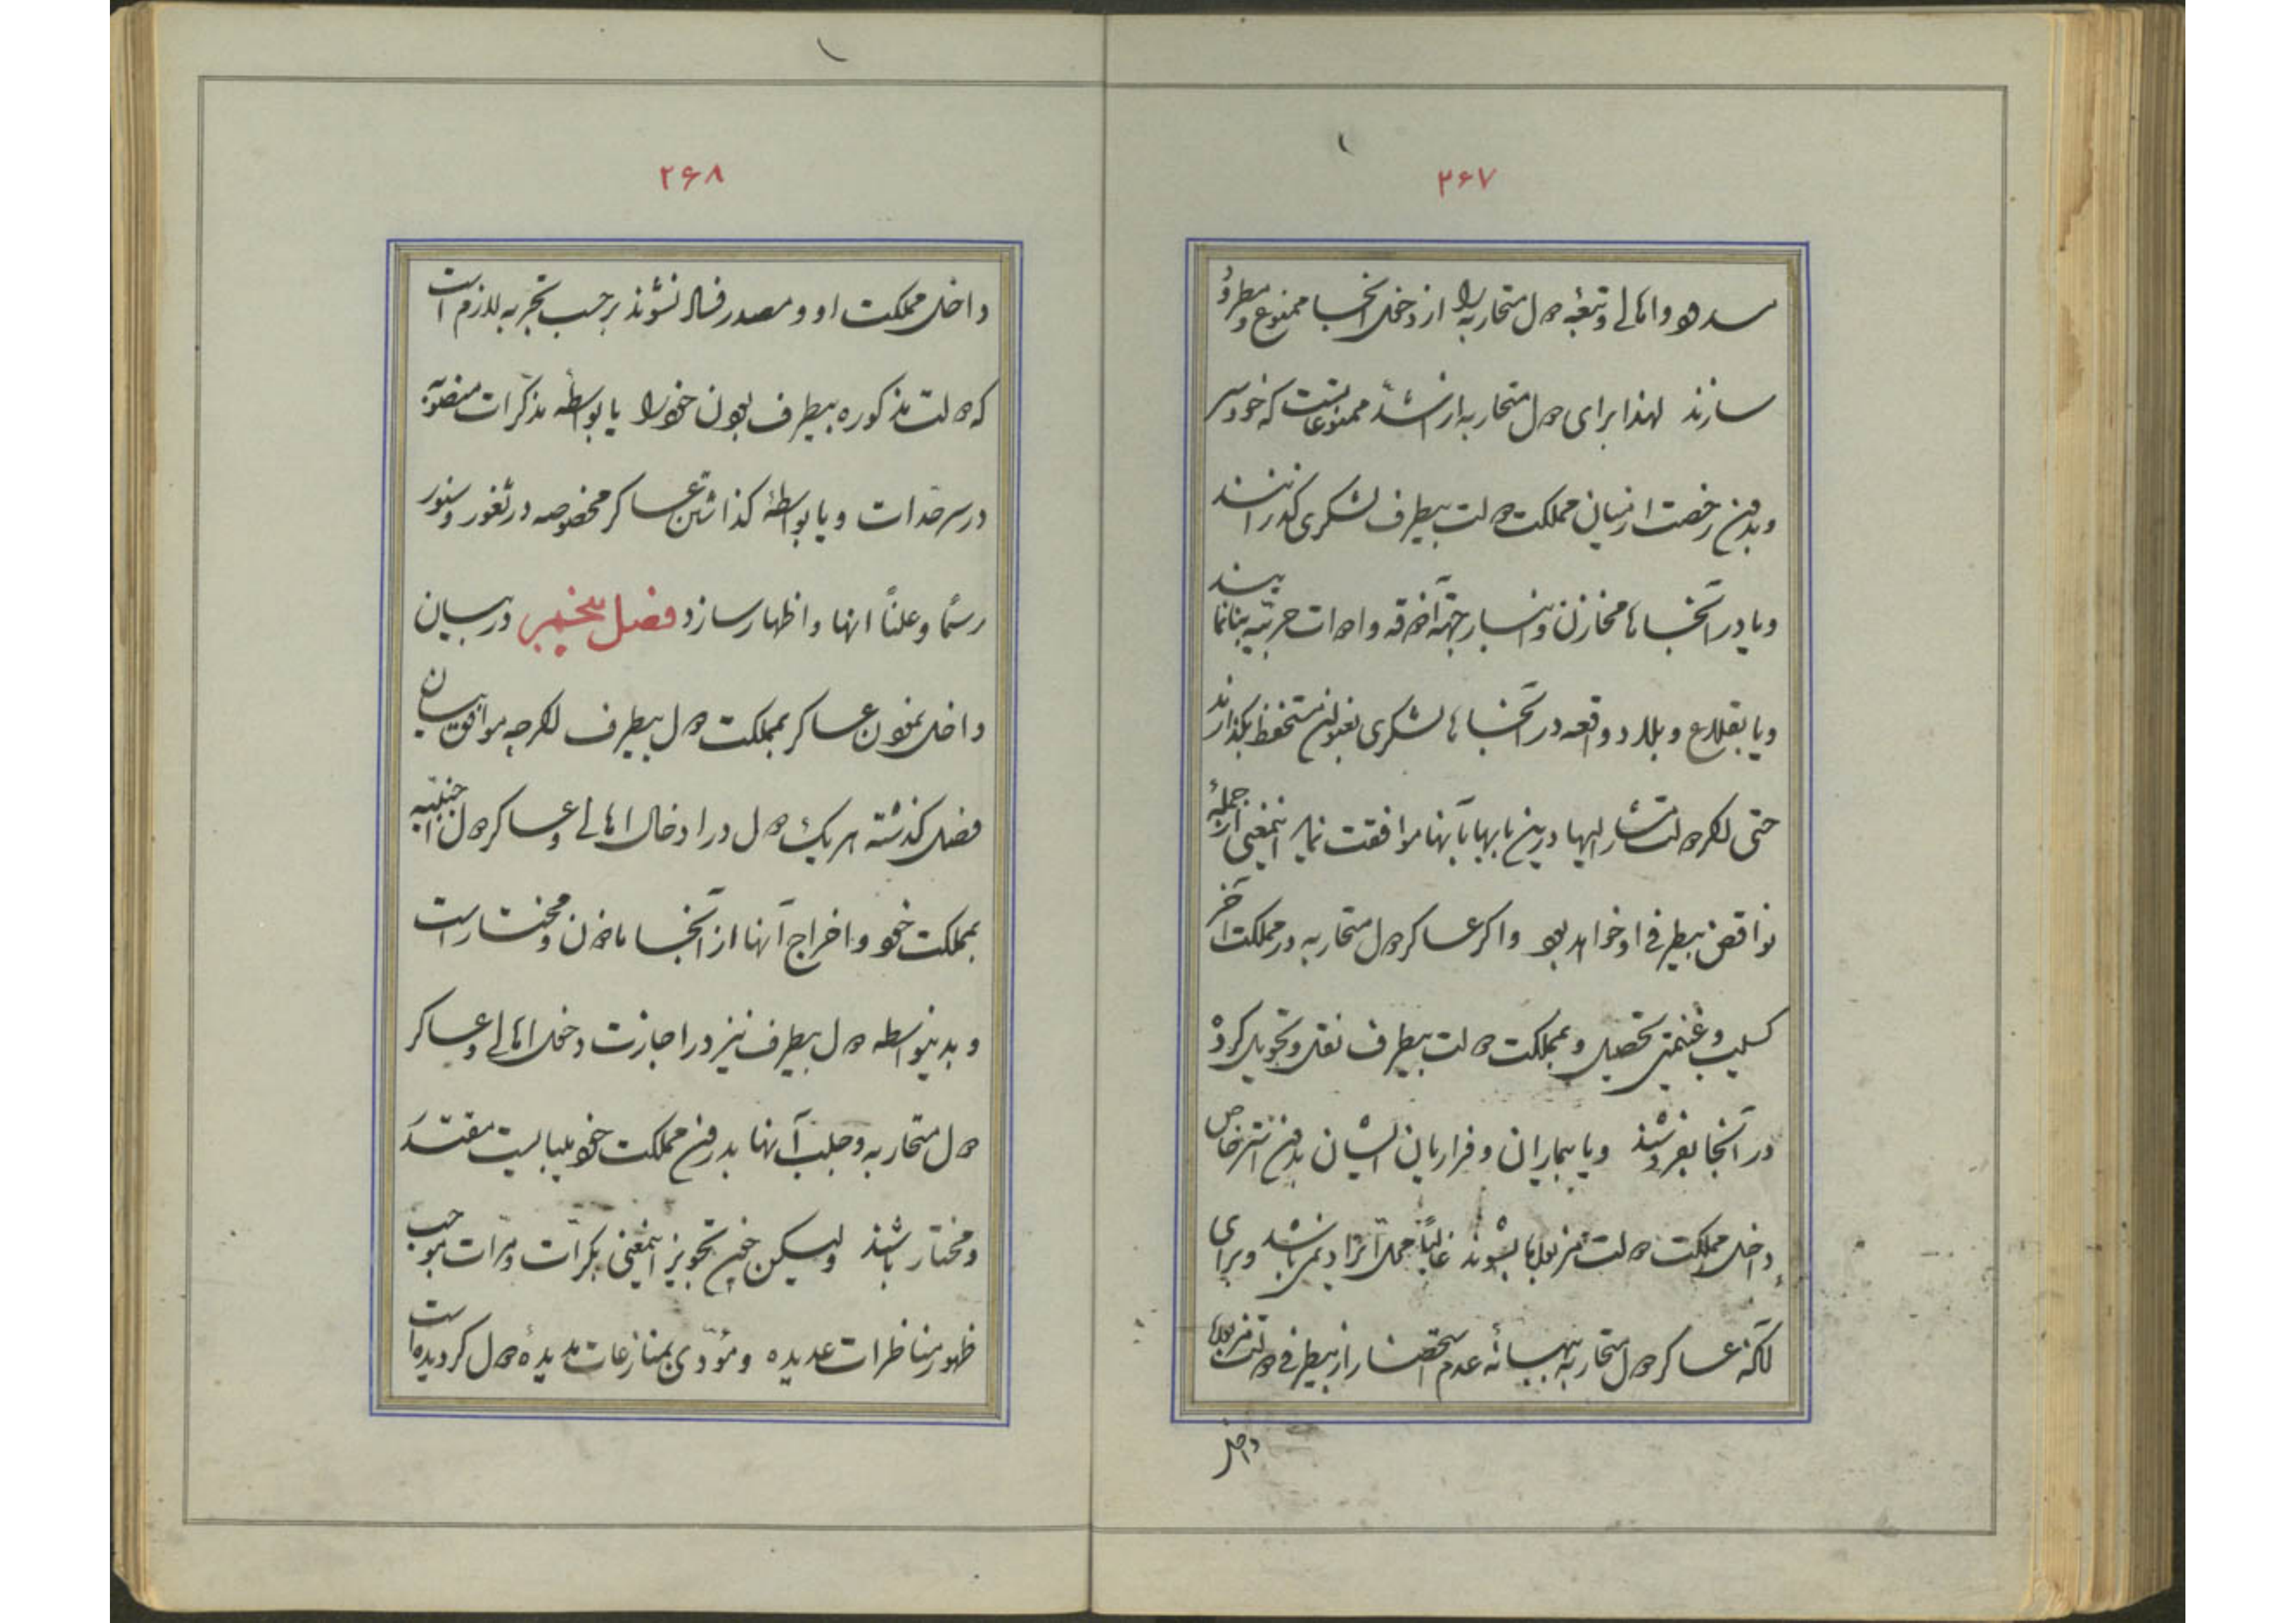 ۲۶۷
سدود و اهالی و تبعهٔ دول متحاربه را از دخول آنجا ممنوع و مطرود
سازند لهذا برای دول متحاربه از اشدّ ممنوعاتست که خودسر
و بدون رخصت از میان مملکت دولت بیطرف لشکری گذرانند
و یا در آنجا ها مخازن و انبار جهة آذوقه و ادوات حربیّه بنا نمایند
و یا بقلاع و بلاد واقعه در آنجا ها لشکری بعنوان مستحفظ بگذارند
حتی اگر دولت مشار الیها درین بابها با آنها موافقت نماید اینمعنی از جملهٔ
نواقض بیطرفی او خواهد بود و اگر عساکر دول متحاربه در مملکت آخر
کسیب و غنیمتی تحصیل و بمملکت دولت بیطرف نقل و تحویل کرده
در آنجا بفروشند و یا بیماران و فراریان ایشان بدون استرخاص
داخل مملکت دولت مزبوره بشوند غالباً حمل آنرا دینمی باشد و برای
آنکه عساکر دول متحاربه ببهانهٔ عدم استحضار از بیطرفی دولت مزبوره
داخل
۲۶۸
داخل مملکت او و مصدر فساد نشوند بر حسب تجربه لازم است
که دولت مذکوره بیطرف بودن خود را یا بواسطه مذکرات منصوبه
در سرحدات و یا بواسطهٔ گذاشتن عساکر مخصوصه در ثغور و سنور
رسماً و علناً انها و اظهار سازد فصل پنجم در بیان
داخل نمودن عساکر بمملکت دول بیطرف اگرچه موافق بیان
فصل گذشته هر یک دول در ادخال اهالی و عساکر دول اجنبیه
بمملکت خود و اخراج آنها از آنجا ماذون و مختار است
و بدینواسطه دول بیطرف نیز در اجازت دخول اهالی و عساکر
دول متحاربه و جلب آنها بدرون مملکت خود میبایست مقتدر
و مختار باشند ولیکن چون تجویز اینمعنی بکرات و مرات موجب
ظهور مناظرات عدیده و مؤدی بمنازعات مدیده دول گردیده است